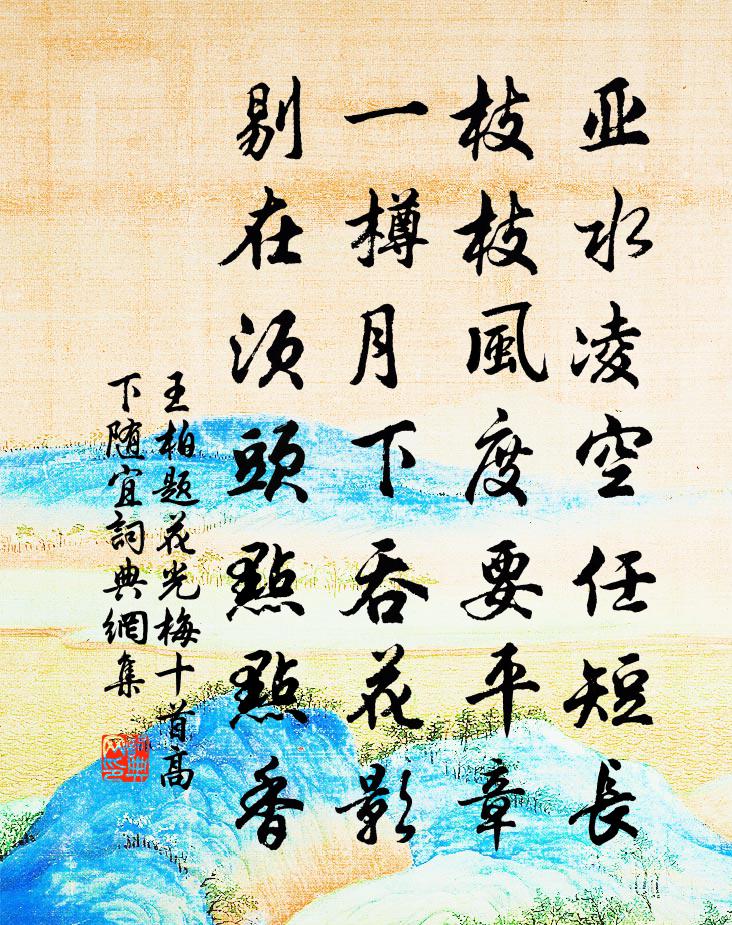 亚水凌空任短長
枝枝風度要平章
一樽月下吞花影
剔在須頭點點香
王柏題花光梅十首高
下随宜詞典網集